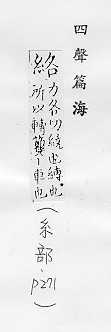 四聲篇海
絡力各切繞也縛也
所以轉籰車也
(糸部、P271)